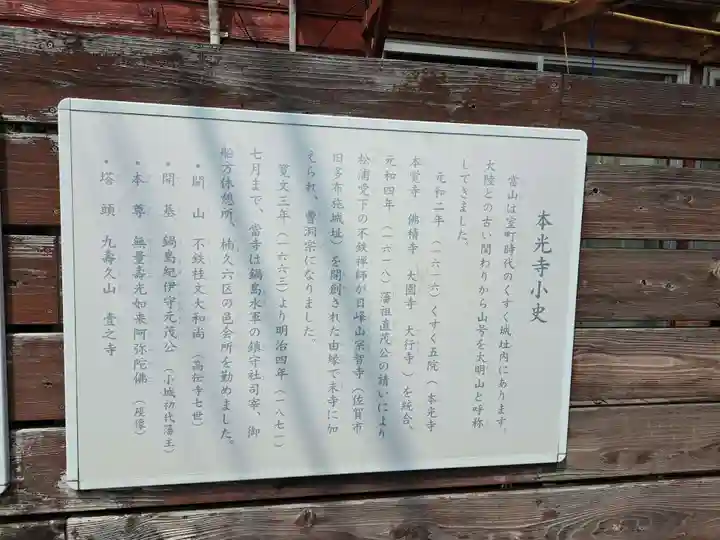 本光寺小史
當山は室町時代のくすく城址内にあります。
大陸との古い関わりから山号を大明山と呼称
してきました。
元和二年(一六一六)くすく五院(本光寺
本覚寺 佛積寺 大圓寺 大行寺)を統合、
元和四年(一六一八)藩祖直茂公の請いにより
松浦愛下の不鉄禅師が日峰山宗智寺(佐賀市
旧多布施城址)を開創された由縁で末寺に加
えられ、曹洞宗になりました。
寛文三年(一六六三)より明治四年(一八七一)
七月まで、當寺は鍋島水軍の鎮守社司宰、御
船方休憩所、楠久六区の邑会所を勤めました。
・開山 不鉄桂文大和尚(高伝寺七世)
・開基 鍋島紀伊守元茂公(小城初代藩主)
・本尊 無量壽光如来阿弥陀佛(座像)
・塔頭 九壽久山 壹之寺